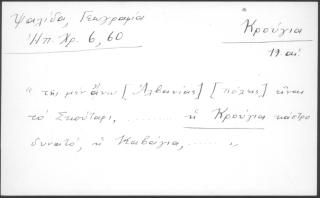 Ψαλίδα, Γεωγραφία
Ηπ. Χρ. 6, 60
Κρούγια
19 αι.
" της μεν άνω [Αλβανίας] [πόλεις] είναι
το Σκουτάρι, ......... η Κρούγια κάστρο
δυνατό, η Καβάγια, ...... "